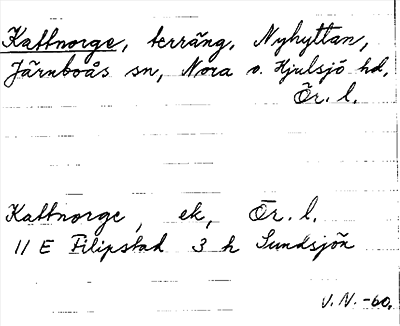 Kattnorge, terräng, Nyhyttan,
Järnboås sn, Nora o. Hjulsjö hd,
Ör. l.
Kattnorge, ek, Ör. l.
11 E Filipstad 3 h Sundsjön
J. N. -60.